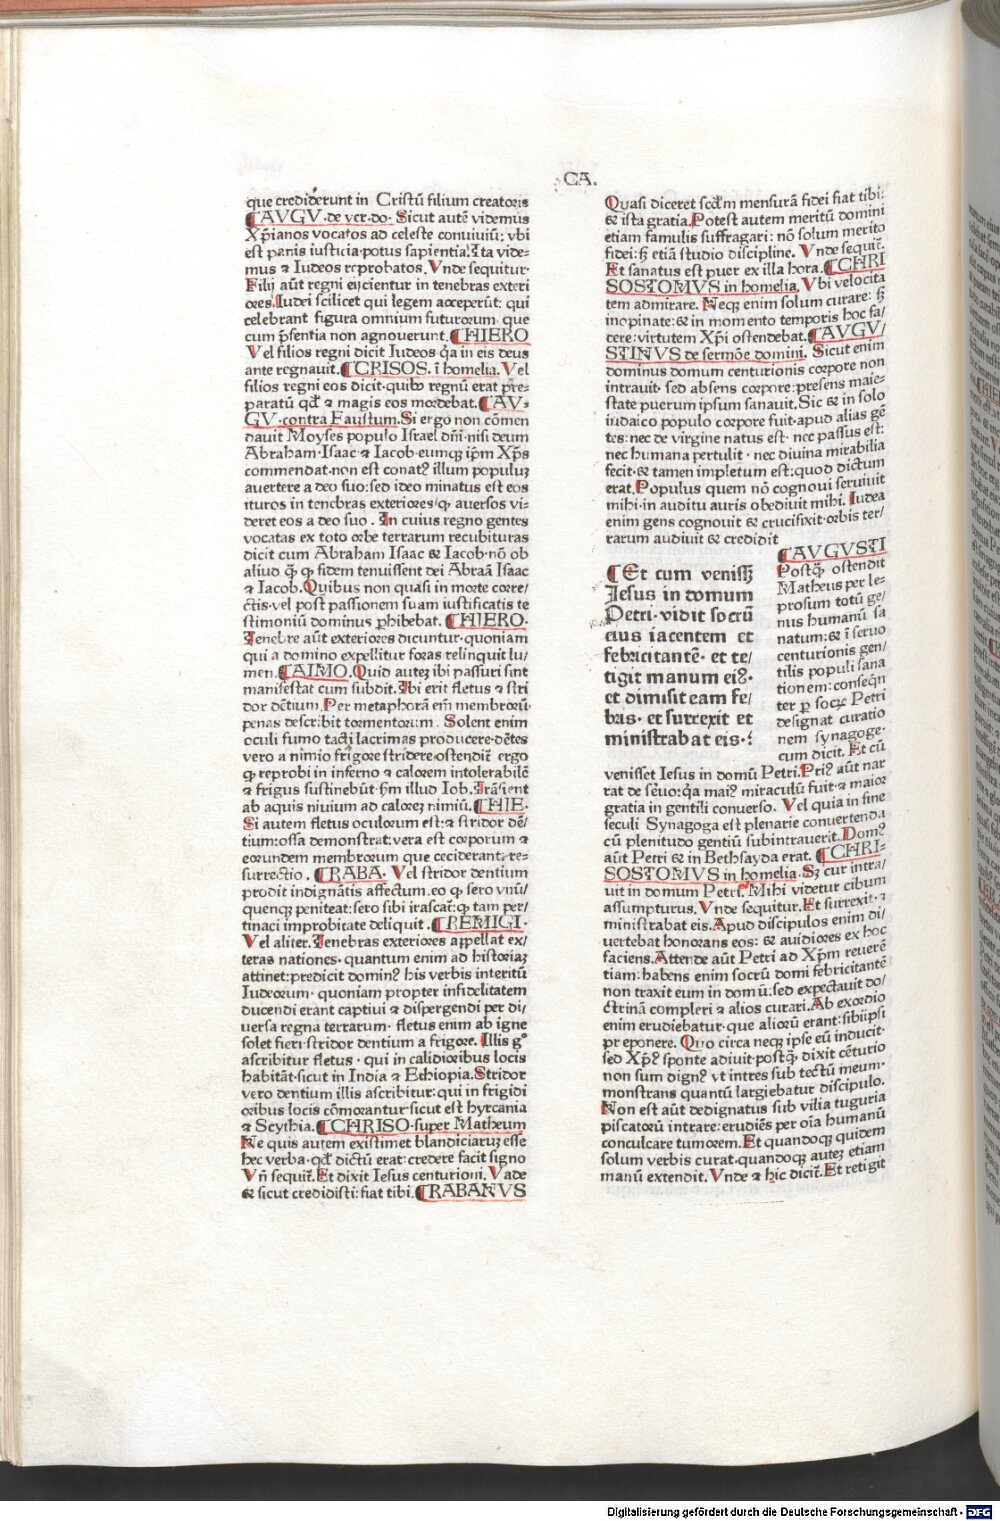 CA.
que crediderunt in Cristū filium creatoris
¶AVGV. de ver. do. Sicut autē videmus
Xp̄ianos vocatos ad celeste conuiuiū: vbi
est panis iusticia·potus sapientia. Ita vide-
mus ⁊ Iudeos reprobatos. Vnde sequitur·
Filij aūt regni eijcientur in tenebras exteri
ores. Iudei scilicet qui legem acceperūt: qui
celebrant figura omnium futurorum· que
cum p̄sentia non agnouerunt. ¶HIERO
Vel filios regni dicit Iudeos q̇a in eis deus
ante regnauit. ¶CRISOS. ī homelia. Vel
filios regni eos dicit· quibꝰ regnū erat pre-
paratū qď ⁊ magis eos mordebat. ¶AV-
GV·contra Faustum. Si ergo non cōmen
dauit Moyses populo Israel dn̄i·nisi deum
Abraham·Isaac·⁊ Iacob·eumqꝫ ip̄m Xp̄s
commendat·non est conatꝰ illum populuꝫ
auertere a deo suo: sed ideo minatus est eos
ituros in tenebras exteriores·ꝙ auersos vi-
deret eos a deo suo. In cuius regno gentes
vocatas ex toto orbe terrarum recubituras
dicit cum Abraham Isaac & Iacob·nō ob
aliud q̄ꝫ ꝙ fidem tenuissent dei Abraā Isaac
⁊ Iacob. Quibus non quasi in morte corre/
ctis·vel post passionem suam iustificatis te
stimoniū dominus ꝑhibebat. ¶HIERO·
Tenebre aūt exteriores dicuntur·quoniam
qui a domino expellitur foras relinquit lu/
men. ¶AIMO. Quid auteꝫ ibi passuri sint
manifestat cum subdit. Ibi erit fletus ⁊ stri
dor dētium. Per metaphorā em̄ membrorū·
penas describit tormentorum. Solent enim
oculi fumo tacti lacrimas producere·dētes
vero a nimio frigore stridere·ostendit̄ ergo
ꝙ reprobi in inferno ⁊ calorem intolerabilē
⁊ frigus sustinebūt·ẜm illud Iob. Trāsient
ab aquis niuium ad caloreꝫ nimiū. ¶HIE·
Si autem fletus oculorum est: ⁊ stridor dē/
tium: ossa demonstrat: vera est corporum ⁊
eorundem membrorum que ceciderant: re-
surrectio. ¶RABA· Vel stridor dentium
prodit indignātis affectum. eo ꝙ sero vnū/
quenqꝫ peniteat: sero sibi irascat̄: ꝙ tam per/
tinaci improbitate deliquit. ¶REMIGI·
Vel aliter. Tenebras exteriores appellat ex/
teras nationes· quantum enim ad historiaꝫ
attinet: predicit dominꝰ his verbis interitū
Iudeorum· quoniam propter infidelitatem
ducendi erant captiui ⁊ dispergendi per di/
uersa regna terrarum· fletus enim ab igne
solet fieri: stridor dentium a frigore. Illis gͦ
ascribitur fletus· qui in calidioribus locis
habitāt·sicut in India ⁊ Ethiopia. Stridor
vero dentium illis ascribitur: qui in frigidi
oribus locis cōmorantur·sicut est hyrcania
⁊ Scythia. ¶CHRISO·super Matheum
Ne quis autem existimet blandiciaruꝫ esse
hec verba·qď dictū erat: credere facit signo
Vn̄ sequit̄. Et dixit Iesus centurioni. Vade
& sicut credidisti: fiat tibi. ¶RABANVS
Quasi diceret scďm mensurā fidei fiat tibi:
& ista gratia. Potest autem meritū domini
etiam famulis suffragari: nō solum merito
fidei: ẜ etiā studio discipline. Vnde sequit̄.
Et sanatus est puer ex illa hora. ¶CHRI
SOSTOMVS in homelia. Vbi velocita
tem admirare. Neqꝫ enim solum curare: ẜ
inopinate: & in momento temporis hoc fa/
cere: virtutem Xp̄i ostendebat. ¶AVGV/
STINVS de sermōe domini. Sicut enim
dominus domum centurionis corpore non
intrauit· sed absens corpore: presens maie-
state puerum ipsum sanauit. Sic & in solo
iudaico populo corpore fuit·apud alias gē
tes: nec de virgine natus est· nec passus est:
nec humana pertulit· nec diuina mirabilia
fecit·& tamen impletum est: quod dictum
erat. Populus quem nō cognoui seruiuit
mihi·in auditu auris obediuit mihi. Iudea
enim gens cognouit & crucifixit·orbis ter/
rarum audiuit & credidit
¶Et cum venissꝫ
Iesus in domum
Petri·vidit socrū
eius iacentem et
febricitantē· et te/
tigit manum eiꝰ·
et dimisit eam fe/
bris· et surrexit et
ministrabat eis·:
¶AVGVSTI
Postq̄ꝫ ostendit
Matheus per le-
prosum totū ge/
nus humanū sa
natum: & ī seruo
centurionis gen/
tilis populi sana
tionem: conseqn̄
ter ꝑ socrꝫ Petri
designat curatio
nem synagoge·
cum dicit. Et cū
venisset Iesus in domū Petri. Priꝰ aūt nar
rat de s̄euo: q̇a maiꝰ miraculū fuit·⁊ maior
gratia in gentili conuerso. Vel quia in fine
seculi Synagoga est plenarie conuertenda
cū plenitudo gentiū subintrauerit. Domꝰ
aūt Petri & in Bethsayda erat. ¶CHRI-
SOSTOMVS in homelia. Sꝫ cur intra/
uit in domum Petri? Mihi videtur cibum
assumpturus. Vnde sequitur. Et surrexit·⁊
ministrabat eis. Apud discipulos enim di/
uertebat honorans eos: & auidiores ex hoc
faciens. Attende aūt Petri ad Xp̄m reuerē
tiam: habens enim socrū domi febricitantē
non traxit eum in domū: sed expectauit do/
ctrinā compleri ⁊ alios curari. Ab exordio
enim erudiebatur·que aliorū erant: sibiipsi
preponere. Quo circa neqꝫ ipse eū inducit·
sed Xp̄s sponte adiuit·postq̄ꝫ dixit cēturio
non sum dignꝰ vt intres sub tectū meum·
monstrans quantū largiebatur discipulo.
Non est aūt dedignatus sub vilia tuguria
piscatorū intrare: erudiēs per oīa humanū
conculcare tumorem. Et quandoqꝫ quidem
solum verbis curat·quandoqꝫ auteꝫ etiam
manū extendit. Vnde ⁊ hic dicit̄. Et retigit
Digitalisierung gefördert durch die Deutsche Forschungsgemeinschaft - DFG